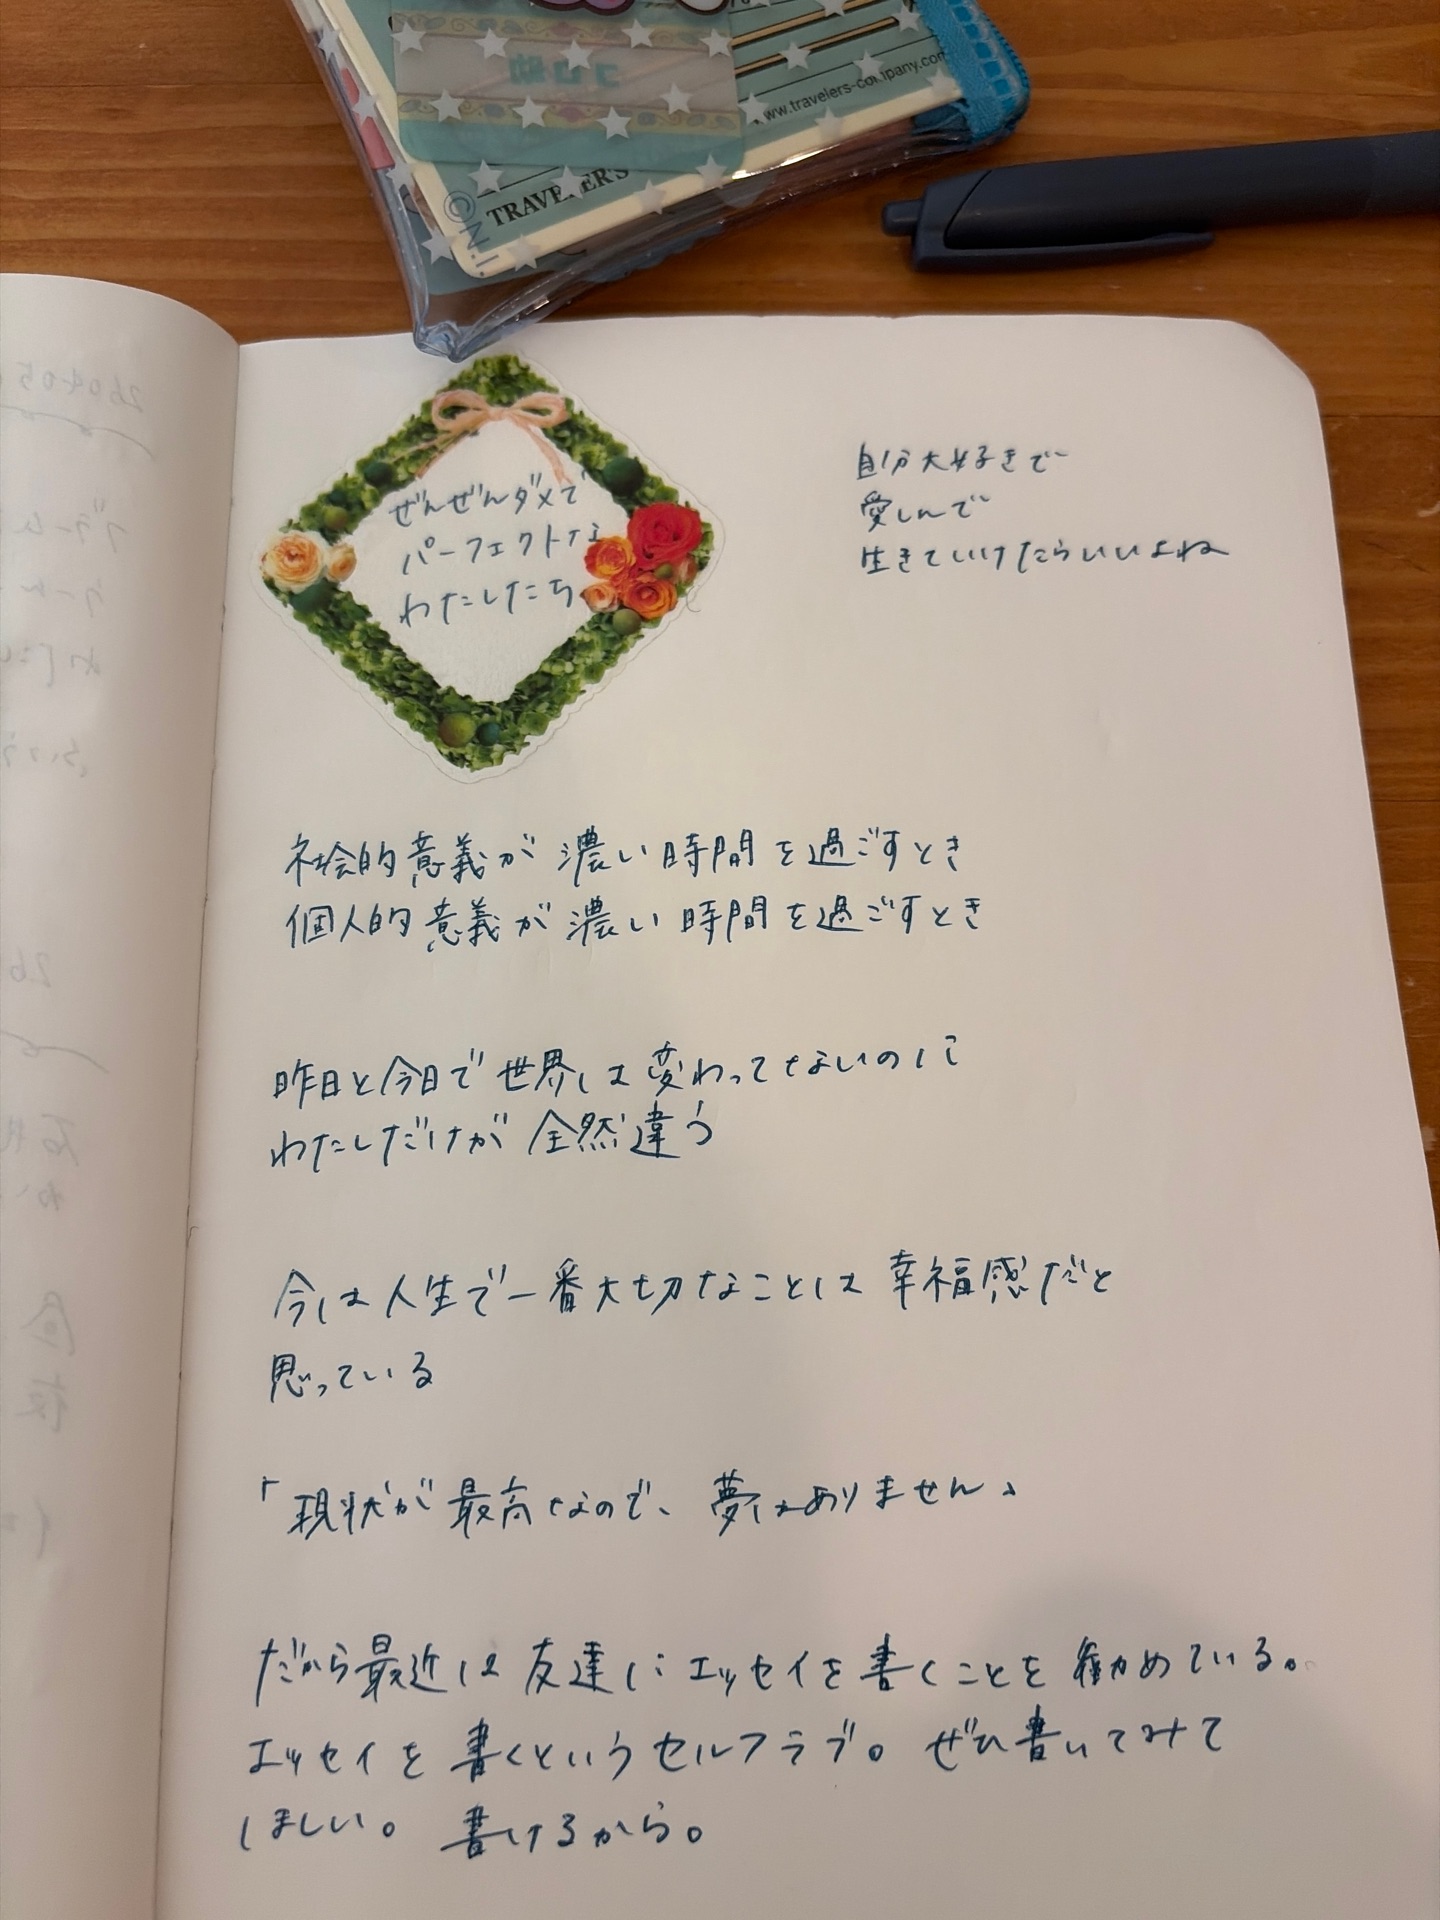 www.travelers-company.com
TRAVELER'S
ぜんぜんダメで
パーフェクトな
わたしたち
自分大好きで
愛しんで
生きていけたらいいよね
社会的意義が濃い時間を過ごすとき
個人的意義が濃い時間を過ごすとき
昨日と今日で世界は変わってないのに
わたしだけが全然違う
今は人生で一番大切なことは幸福感だと
思っている
「現状が最高なので、夢はありません」
だから最近は友達にエッセイを書くことを勧めている。
エッセイを書くというセルフラブ。ぜひ書いてみて
ほしい。書けるから。